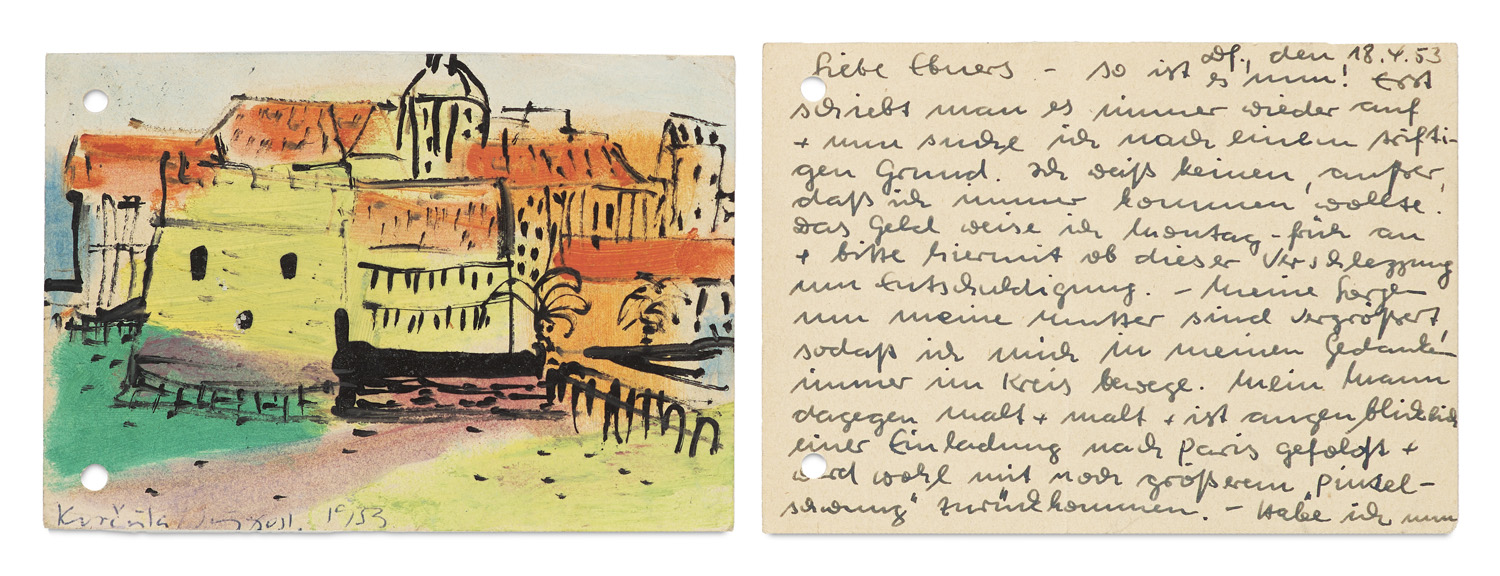 Korčula Jugosl. 19/53
Df., den 18.4.53
Liebe Ebners - so ist es nun! Erst
schiebt man es immer wieder auf
+ nun suche ich nach einem trifti-
gen Grund. Ich weiß keinen, außer,
daß ich immer kommen wollte.
Das Geld weise ich Montag-früh an
+ bitte hiermit ob dieser Verschleppung
um Entschuldigung. - Meine Sorgen
um meine Mutter sind vergrößert,
sodaß ich mich in meinen Gedanken
immer im Kreis bewege. Mein Mann
dagegen malt + malt + ist augenblicklich
einer Einladung nach Paris gefolgt +
wird wohl mit noch größerem "Pinsel-
schwung" zurückkommen. - Habe ich nun